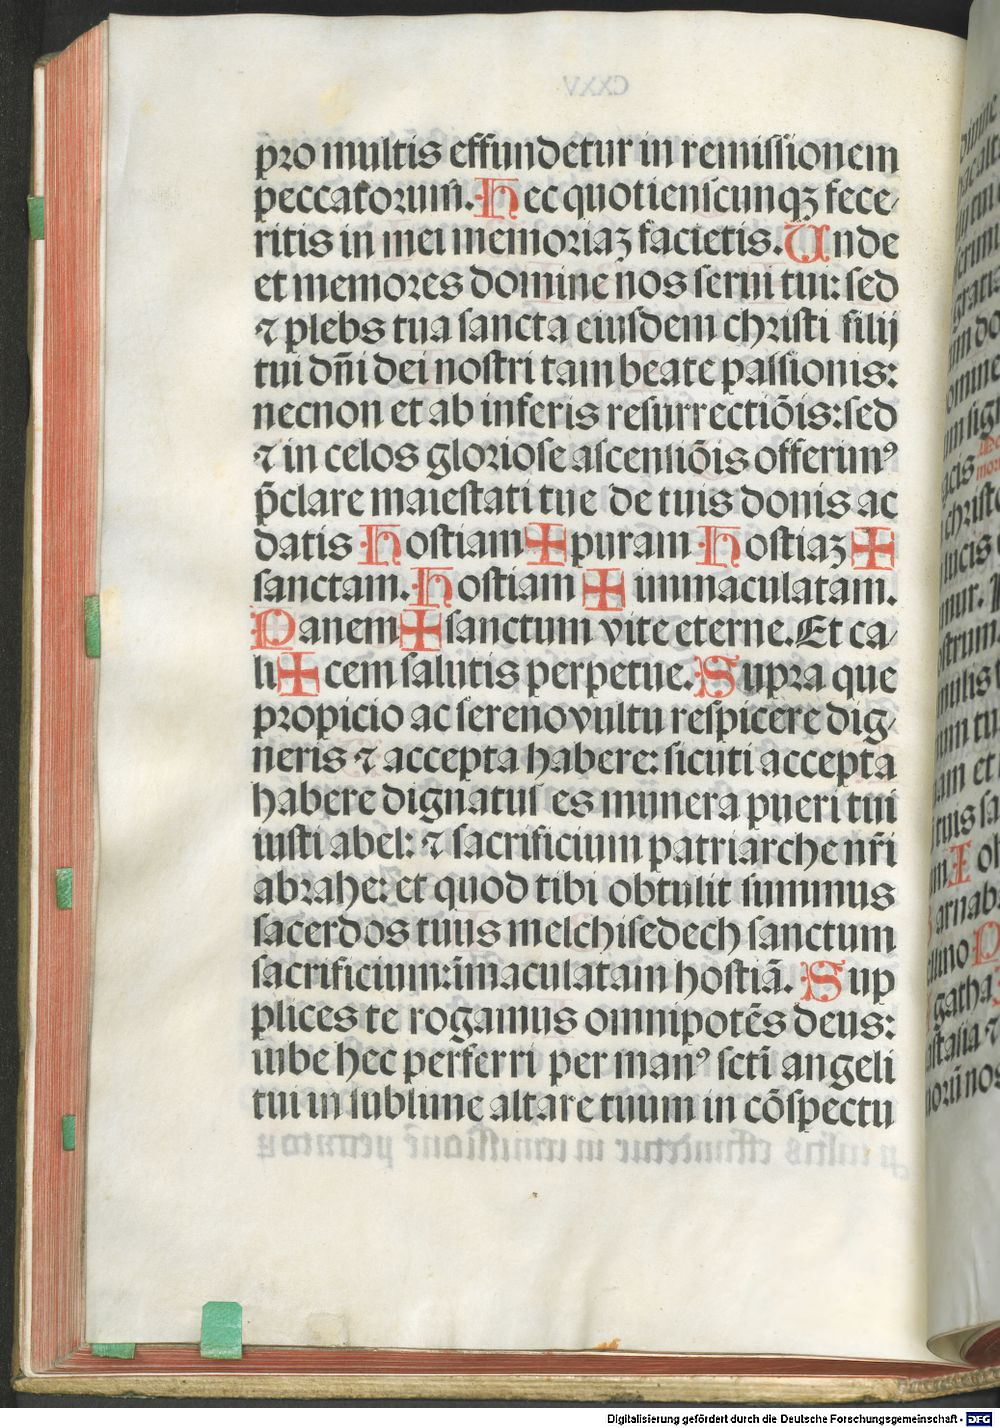 pro multis effundetur in remissionem
peccatorum. Hec quotienscunqꝫ fece⸗
ritis in mei memoriaꝫ facietis. Unde
et memores domine nos serui tui: sed
⁊ plebs tua sancta eiusdem christi filij
tui dn̄i dei nostri tam beate passionis:
necnon et ab inferis resurrectiōis: sed
⁊ in celos gloriose ascensiōis offerimꝰ
p̄clare maiestati tue de tuis donis ac
datis Hostiam ✠ puram Hostiaꝫ ✠
sanctam. Hostiam ✠ immaculatam.
Panem ✠ sanctum vite eterne. Et ca⸗
li ✠ cem salutis perpetue. Supra que
propicio ac sereno vultu respicere dig⸗
neris ⁊ accepta habere: sicuti accepta
habere dignatus es munera pueri tui
iusti abel: ⁊ sacrificium patriarche nr̄i
abrahe: et quod tibi obtulit summus
sacerdos tuus melchisedech sanctum
sacrificium: īmaculatam hostiā. Sup
plices te rogamus omnipotēs deus:
iube hec perferri per manꝰ scti angeli
tui in sublime altare tuum in cōspectu
Digitalisierung gefördert durch die Deutsche Forschungsgemeinschaft - DFG